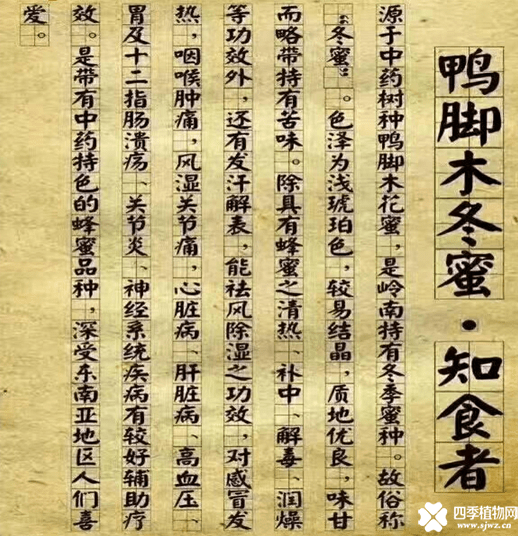 鸭脚木冬蜜·知食者
源于中药树种鸭脚木花蜜，是岭南特有冬季蜜种。故俗称
“冬蜜”。色泽为浅琥珀色，较易结晶，质地优良，味甘
而略带持有苦味。除具有蜂蜜之清热、补中、解毒、润燥
等功效外，还有发汗解表，能祛风除湿之功效，对感冒发
热，咽喉肿痛，风湿关节痛，心脏病、肝脏病、高血压、
胃及十二指肠溃疡、关节炎、神经系统疾病有较好辅助疗
效。是带有中药特色的蜂蜜品种，深受东南亚地区人们喜
爱。
四季植物网
www.sjwz.cn